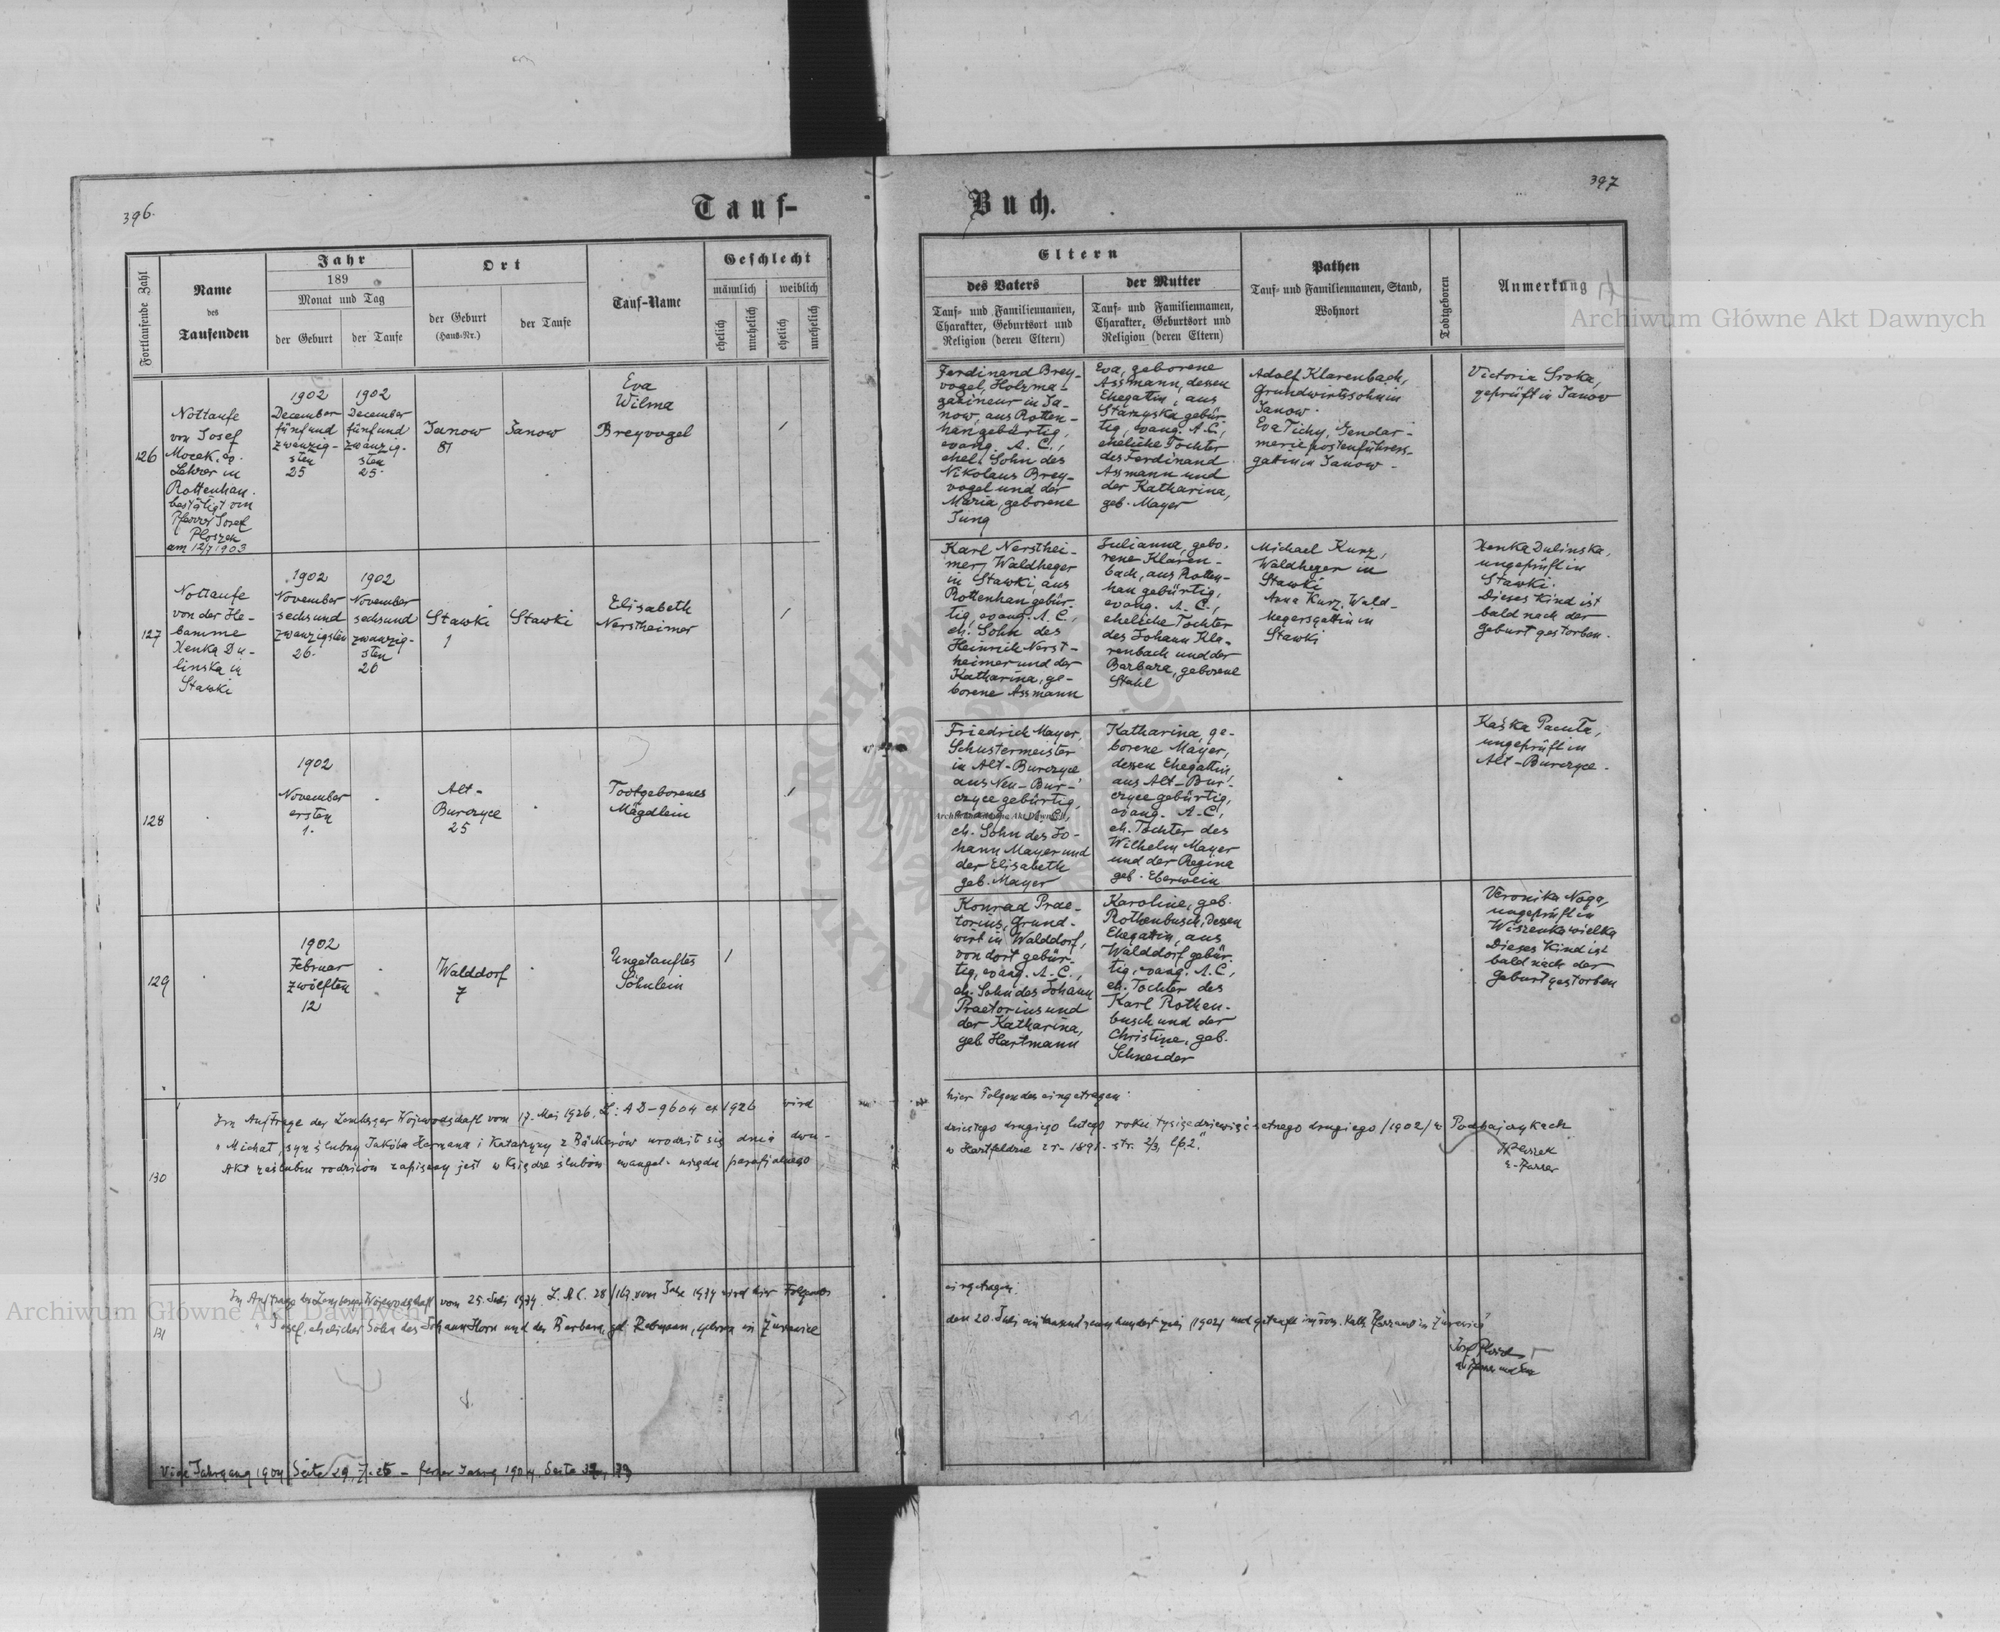 396.
Tauf-
Fortlaufende Zahl
Name
des
Taufenden
Jahr
189
Monat und Tag
der Geburt
der Taufe
Ort
der Geburt
(Haus-Nr.)
der Taufe
Tauf-Name
Geschlecht
männlich
weiblich
ehelich
unehelich
ehelich
unehelich
126
Nottaufe
von Josef
Mocek, ev.
Lehrer in
Rottenhan.
bestätigt vom
Pfarrer Josef
Ploszek
am 12/7 1903
1902
December
fünfund
zwanzig-
sten
25
1902
December
fünfund
zwanzig-
sten
25.
Janow
87
Janow
Eva
Wilma
Breyvogel
/
127
Nottaufe
von der He-
bamme
Xenka Du-
linska in
Stawki
1902
November
sechsund
zwanzigsten
26.
1902
November
sechsund
zwanzig-
sten
26
Stawki
1
Stawki
Elisabeth
Nerstheimer
/
128
1902
November
ersten
1.
Alt-
Burczyce
25
Todtgeborenes
Mägdlein
/
129
1902
Februar
zwölften
12
Walddorf
7
Ungetauftes
Söhnlein
/
130
Im Auftrage der Lemberger Wojewodschaft vom 17. Mai 1926, L: AD-9604 ex 1926 wird
"Michał, syn ślubny Jakóba Hermana i Katarzyny z Bäckerów urodził się dnia dwu-
Akt zaślubin rodziców zapisany jest w Księdze ślubów ewangel. urzędu parafjalnego
131
Im Auftrage der Lemberger Wojewodschaft vom 25. Juli 1934 vom Jahre 1934 wird hier Folgendes
"Josef, ehelicher Sohn des Johann Horn und der Barbara, geb. geboren in Żurawice
Vide Jahrgang 1904 Seite 29, 7. 26 - ferner Jahrg 1904, Seite
397
Buch.
Eltern
des Vaters
Tauf- und Familiennamen,
Charakter, Geburtsort und
Religion (deren Eltern)
der Mutter
Tauf- und Familiennamen,
Charakter, Geburtsort und
Religion (deren Eltern)
Pathen
Tauf- und Familiennamen, Stand,
Wohnort
Todtgeboren
Anmerkung
Archiwum Główne Akt Dawnych
Ferdinand Brey-
vogel, Holzma-
gazineur in Ja-
now, aus Rotten-
han gebürtig,
evang. A. C.,
ehel. Sohn des
Nikolaus Brey-
vogel und der
Maria, geborene
Jung
Eva, geborene
Assmann, dessen
Ehegattin, aus
Starzyska gebür-
tig, evang. A.C.,
eheliche Tochter
des Ferdinand
Assmann und
der Katharina,
geb. Mayer
Adolf Klarenbach,
Grundwirtssohn in
Janow.
Eva Tichy, Gendar-
merie postenführers-
gattin in Janow.
Victoria Sroka,
geprüft in Janow
Karl Nersthei-
mer, Waldheger
in Stawki, aus
Rottenhan gebür-
tig, evang. A. C.,
eh. Sohn des
Heinrich Nerst-
heimer und der
Katharina, ge-
borene Assmann
Julianna, gebo-
rene Klaren-
bach, aus Rotten-
han gebürtig,
evang. A. C.,
eheliche Tochter
des Johann Kla-
renbach und der
Barbara, geborene
Stahl
Michael Kurz,
Waldheger in
Stawki
Anna Kurz, Wald-
hegersgattin in
Stawki
Xenka Dulinska,
ungeprüft in
Stawki.
Dieses Kind ist
bald nach der
Geburt gestorben.
Friedrich Mayer,
Schustermeister
in Alt-Burczyce,
aus Neu-Bur-
czyce gebürtig,
evang. A. C.,
eh. Sohn des Jo-
hann Mayer und
der Elisabeth
geb. Mayer
Katharina, ge-
borene Mayer,
dessen Ehegattin,
aus Alt-Bur-
czyce gebürtig,
evang. A. C,
eh. Tochter des
Wilhelm Mayer
und der Regina
geb. Eberwein
Kaśka Pacuta,
ungeprüft in
Alt-Burczyce.
Archiwum Główne Akt Dawnych
Konrad Prae-
torius, Grund-
wirt in Walddorf,
von dort gebür-
tig, evang. A. C.,
eh. Sohn des Johann
Praetorius und
der Katharina,
geb. Hartmann
Karoline, geb.
Rothenbusch, dessen
Ehegattin, aus
Walddorf gebür-
tig, evang. A. C,
eh. Tochter des
Karl Rothen-
busch und der
Christine, geb.
Schneider
Veronika Noga,
ungeprüft in
Wiszenka wielka
Dieses Kind ist
bald nach der
Geburt gestorben
hier Folgendes eingetragen:
dziestego drugiego lutego roku tysiąc dziewięćsetnego drugiego /1902/ w Podhajczykach
w Hartfeldzie z r. 1891. str. 2/3, lp. 2."
JPloszek
e. Pfarrer
eingetragen:
den 20. Juli eintausend neunhundert zwei /1902/ und getauft im röm. kath. Pfarramt in Żurawice"
Josef Ploszek
Archiwum Główne Akt Dawnych